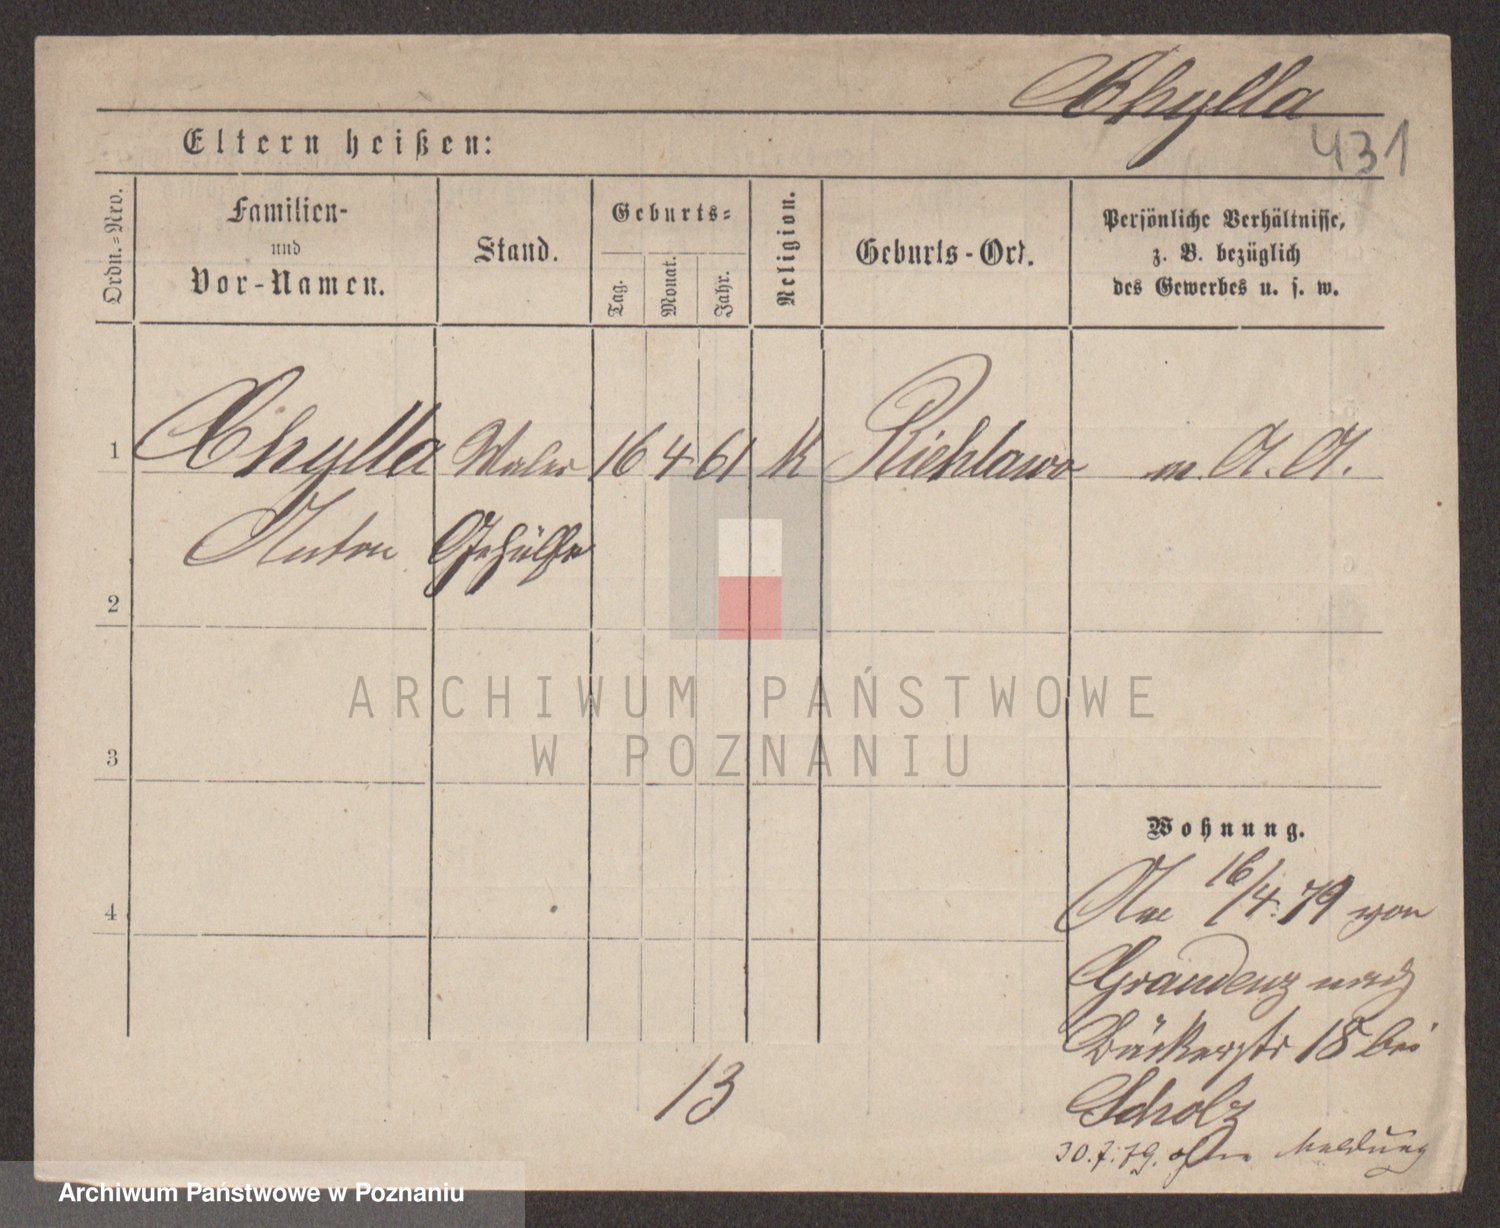 Chylla
431
Eltern heißen:
Ordn.=Nro.
Familien-
und
Vor-Namen.
Stand.
Geburts=
Tag.
Monat.
Jahr.
Religion.
Geburts-Ort.
Persönliche Verhältnisse,
z. B. bezüglich
des Gewerbes u. s. w.
1 Chylla Maler 16 4 61 k Richlawo m. A. A.
Anton Gehülfe
2
ARCHIWUM PAŃSTWOWE
W POZNANIU
3
Wohnung.
4
16/4.79 von
Graudenz nach
Bäckerstr 18 bei
Scholz
13
30.7.79. ohne Meldung
Archiwum Państwowe w Poznaniu